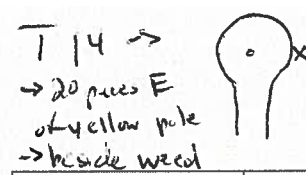 T 14 →
→ 20 paces E
of yellow pole
→ beside weed